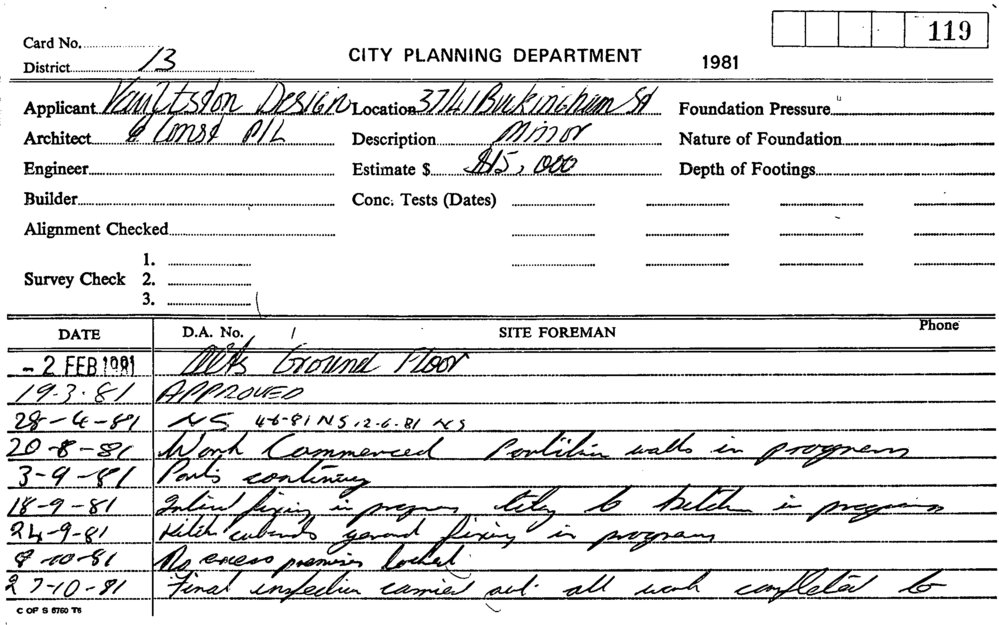 119
Card No.
District 13
CITY PLANNING DEPARTMENT 1981
Applicant Vaultston Design Location 37/41 Buckingham St Foundation Pressure
Architect & Const P/L Description Minor Nature of Foundation
Engineer Estimate $ $15,000 Depth of Footings
Builder Conc. Tests (Dates)
Alignment Checked
1.
Survey Check 2.
3.
DATE D.A. No. SITE FOREMAN Phone
- 2 FEB 1981 Alts Ground Floor
19.3.81 APPROVED
28-4-81 NS 4-6-81 NS, 12-6-81 NS
20-8-81 Work Commenced Partition walls in progress
3-9-81 Parts continuing
18-9-81 fixing in progress to kitchen in progress
24-9-81 Kitch cubards general fixing in progress
8-10-81 No access premises locked
27-10-81 Final inspection carried out all work completed to
C OF S 6760 T6